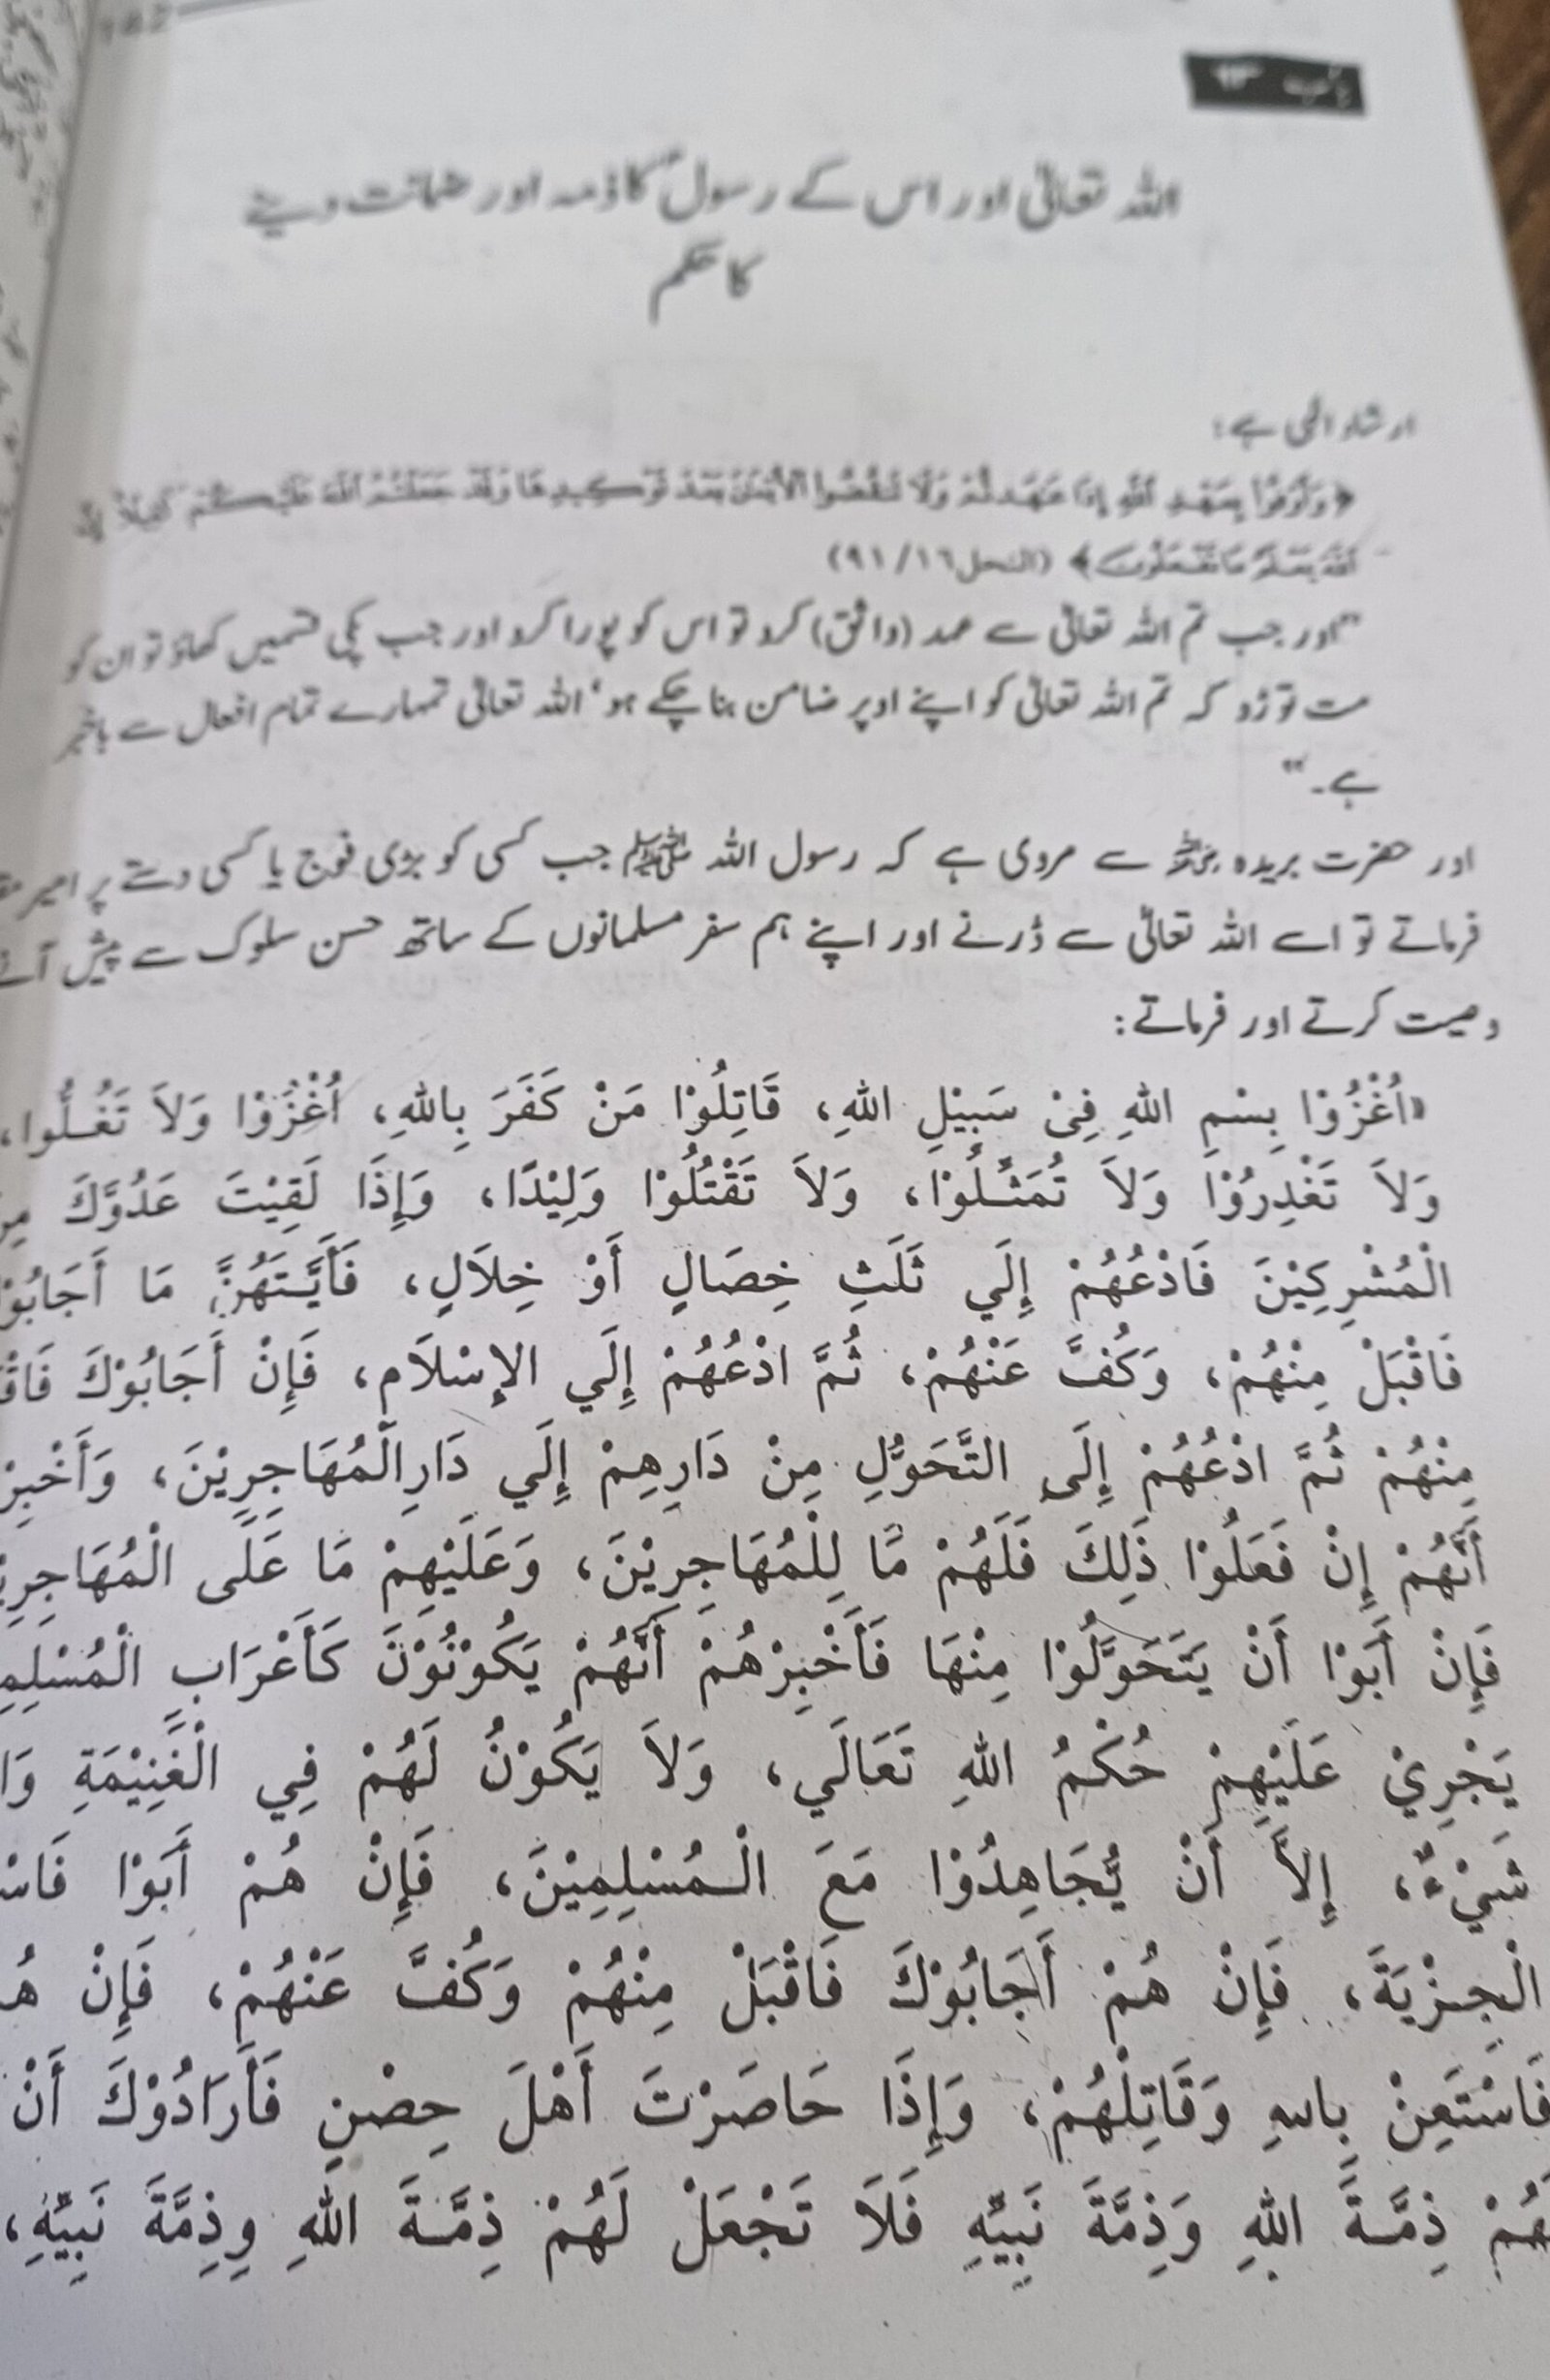 باب ۶۳
اللہ تعالیٰ اور اس کے رسولؐ کا ذمہ اور ضمانت دینے
کا حکم
ارشاد الٰہی ہے:
﴿وَأَوْفُوا بِعَهْدِ اللَّهِ إِذَا عَاهَدتُّمْ وَلَا تَنقُضُوا الْأَيْمَانَ بَعْدَ تَوْكِيدِهَا وَقَدْ جَعَلْتُمُ اللَّهَ عَلَيْكُمْ كَفِيلًا إِنَّ
اللَّهَ يَعْلَمُ مَا تَفْعَلُونَ﴾ (النحل ۱۶/۹۱)
"اور جب تم اللہ تعالیٰ سے عہد (واثق) کرو تو اس کو پورا کرو اور جب پکی قسمیں کھاؤ تو ان کو
مت توڑو کہ تم اللہ تعالیٰ کو اپنے اوپر ضامن بنا چکے ہو' اللہ تعالیٰ تمہارے تمام افعال سے باخبر
ہے۔"
اور حضرت بریدہ رضی اللہ عنہ سے مروی ہے کہ رسول اللہ ﷺ جب کسی کو بڑی فوج یا کسی دستے پر امیر
فرماتے تو اسے اللہ تعالیٰ سے ڈرنے اور اپنے ہم سفر مسلمانوں کے ساتھ حسن سلوک سے پیش آنے
وصیت کرتے اور فرماتے:
«اُغْزُوْا بِسْمِ اللهِ فِیْ سَبِيْلِ اللهِ، قَاتِلُوْا مَنْ كَفَرَ بِاللهِ، اُغْزُوْا وَلاَ تَغُلُّوا،
وَلاَ تَغْدِرُوْا وَلاَ تُمَثِّلُوْا، وَلاَ تَقْتُلُوْا وَلِيْدًا، وَإِذَا لَقِيْتَ عَدُوَّكَ مِنَ
الْمُشْرِكِيْنَ فَادْعُهُمْ إِلَي ثَلَثِ خِصَالٍ أَوْ خِلاَلٍ، فَأَيَّتَهُنَّ مَا أَجَابُوْ
فَاقْبَلْ مِنْهُمْ، وَكُفَّ عَنْهُمْ، ثُمَّ ادْعُهُمْ إِلَي الإِسْلاَمِ، فَإِنْ أَجَابُوْكَ فَاقْ
مِنْهُمْ ثُمَّ ادْعُهُمْ إِلَى التَّحَوُّلِ مِنْ دَارِهِمْ إِلَي دَارِالْمُهَاجِرِيْنَ، وَأَخْبِرْ
أَنَّهُمْ إِنْ فَعَلُوْا ذَلِكَ فَلَهُمْ مَا لِلْمُهَاجِرِيْنَ، وَعَلَيْهِمْ مَا عَلَى الْمُهَاجِرِيْ
فَإِنْ أَبَوْا أَنْ يَتَحَوَّلُوْا مِنْهَا فَأَخْبِرْهُمْ أَنَّهُمْ يَكُوْنُوْنَ كَأَعْرَابِ الْمُسْلِمِ
يَجْرِيْ عَلَيْهِمْ حُكْمُ اللهِ تَعَالَي، وَلاَ يَكُوْنُ لَهُمْ فِي الْغَنِيْمَةِ وَا
شَيْءٌ، إِلاَّ أَنْ يُّجَاهِدُوْا مَعَ الْمُسْلِمِيْنَ، فَإِنْ هُمْ أَبَوْا فَاسْ
الْجِزْيَةَ، فَإِنْ هُمْ أَجَابُوْكَ فَاقْبَلْ مِنْهُمْ وَكُفَّ عَنْهُمْ، فَإِنْ هُ
فَاسْتَعِنْ بِاللهِ وَقَاتِلْهُمْ، وَإِذَا حَاصَرْتَ أَهْلَ حِصْنٍ فَأَرَادُوْكَ أَنْ
لَهُمْ ذِمَّةَ اللهِ وَذِمَّةَ نَبِيِّهِ فَلاَ تَجْعَلْ لَهُمْ ذِمَّةَ اللهِ وِذِمَّةَ نَبِيِّهِ،